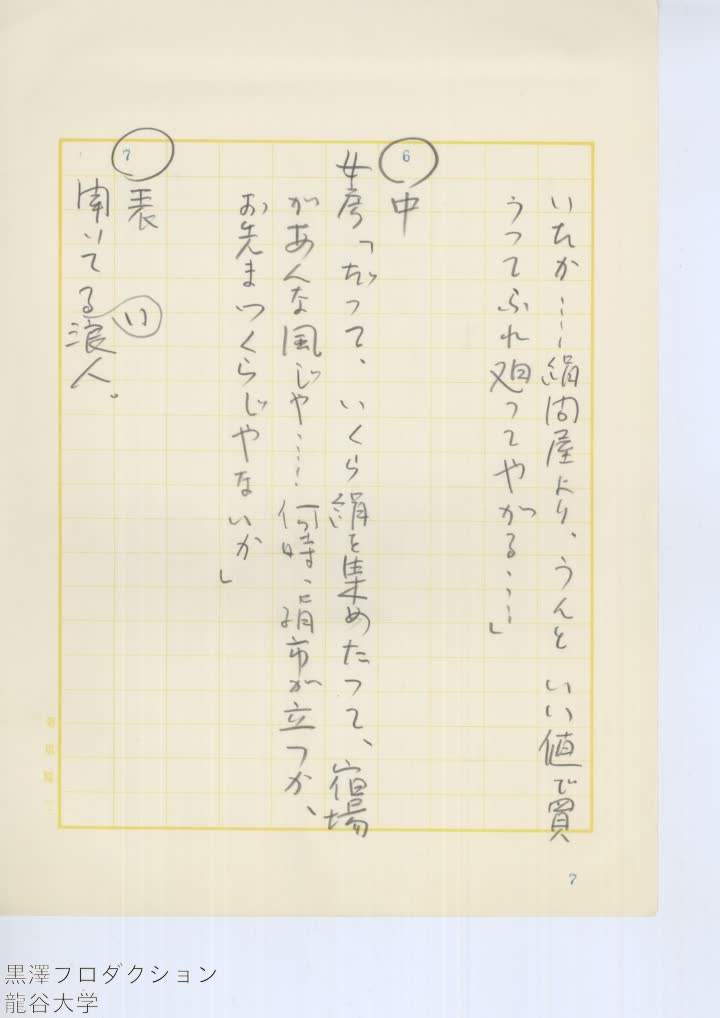 いたか……絹問屋より、うんといい値で買
うってふれ廻ってやがる……」
6
中
女房「だって、いくら絹を集めたって、宿場
があんな風じゃ……何時、絹市が立つか、
お先まつくらじやないか」
7
表
い
聞いてる浪人。
7
黒澤プロダクション
龍谷大学